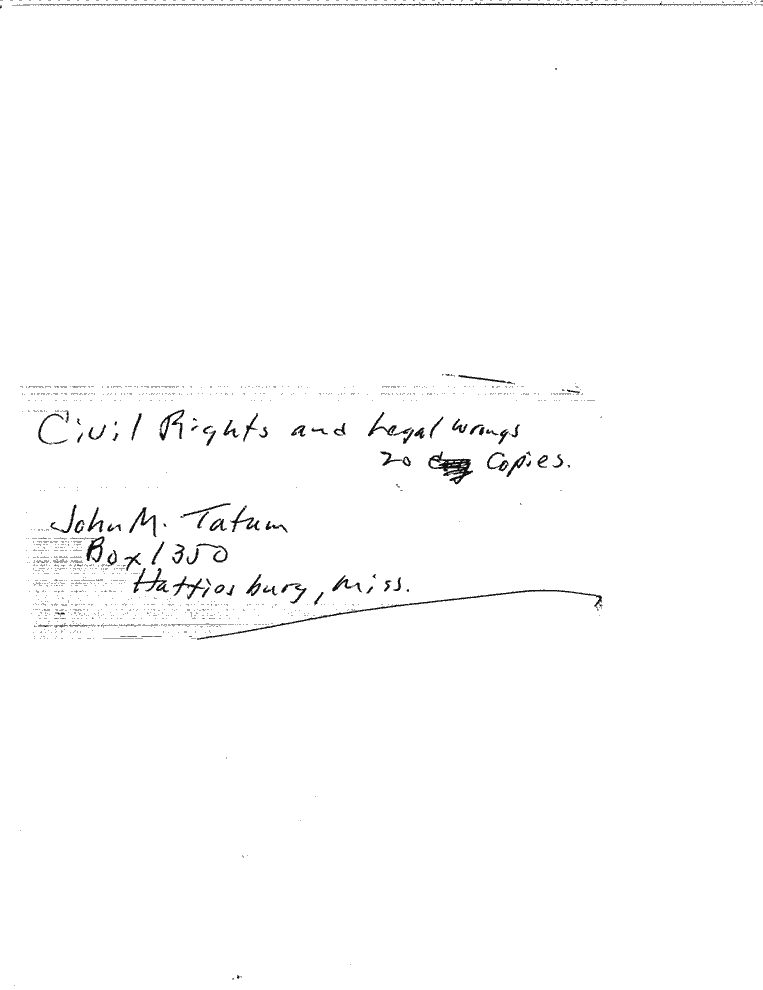 Civil Rights and Legal Wrongs
20 Copies.
John M. Tatum
Box 1350
Hattiesburg, Miss.